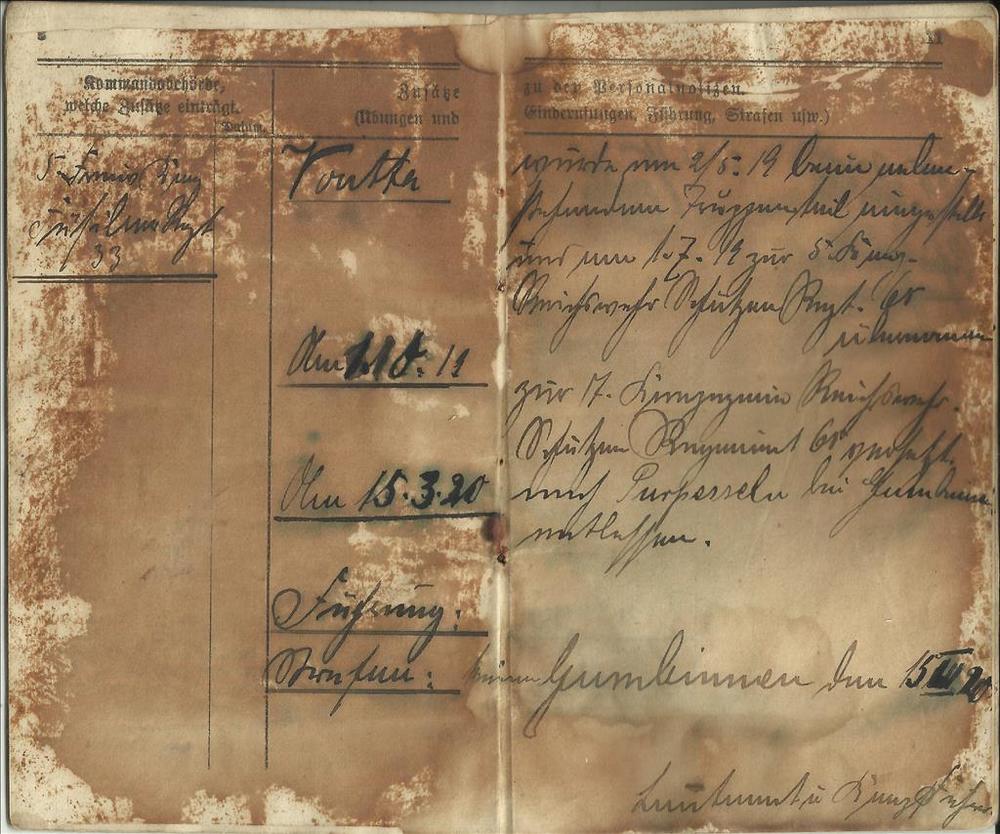 Kommandobehörde,
welche Zusätze einträgt.
Datum.
Zusätze
(Übungen und
zu den Personalnotizen.
Einberufungen, Führung, Strafen usw.)
5.
Füsilier Rgt
33
wurde am 2/5. 19 beim
Truppenteil eingestellt
und am 1.7. 19 zur 5. Komp.
Reichswehr Schützen Rgt.
übernommen
Am 1.10. 19
zur 17. Kompagnie Reichswehr
Schützen Regiment versetzt.
Am 15.3.20
nach bei Gumbinnen
entlassen.
Führung:
Strafen: keine
Gumbinnen den 15 III 20
Leutnant u Komp Führer